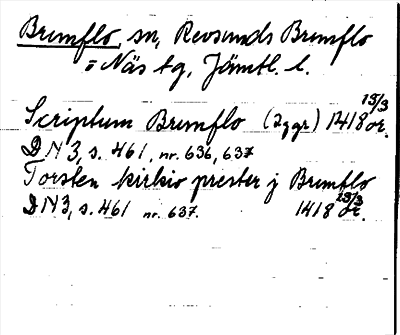 Brumflo, sn, Revsunds Brumflo
= Näs tg, Jämtl. l.
Scriptum Brumflo (2 ggr) 1418 15/3 or.
DN 3, s. 461, nr. 636, 637
Torsten kirkio prester j Brumflo
DN 3, s. 461 nr. 637. 1418 15/3 or.